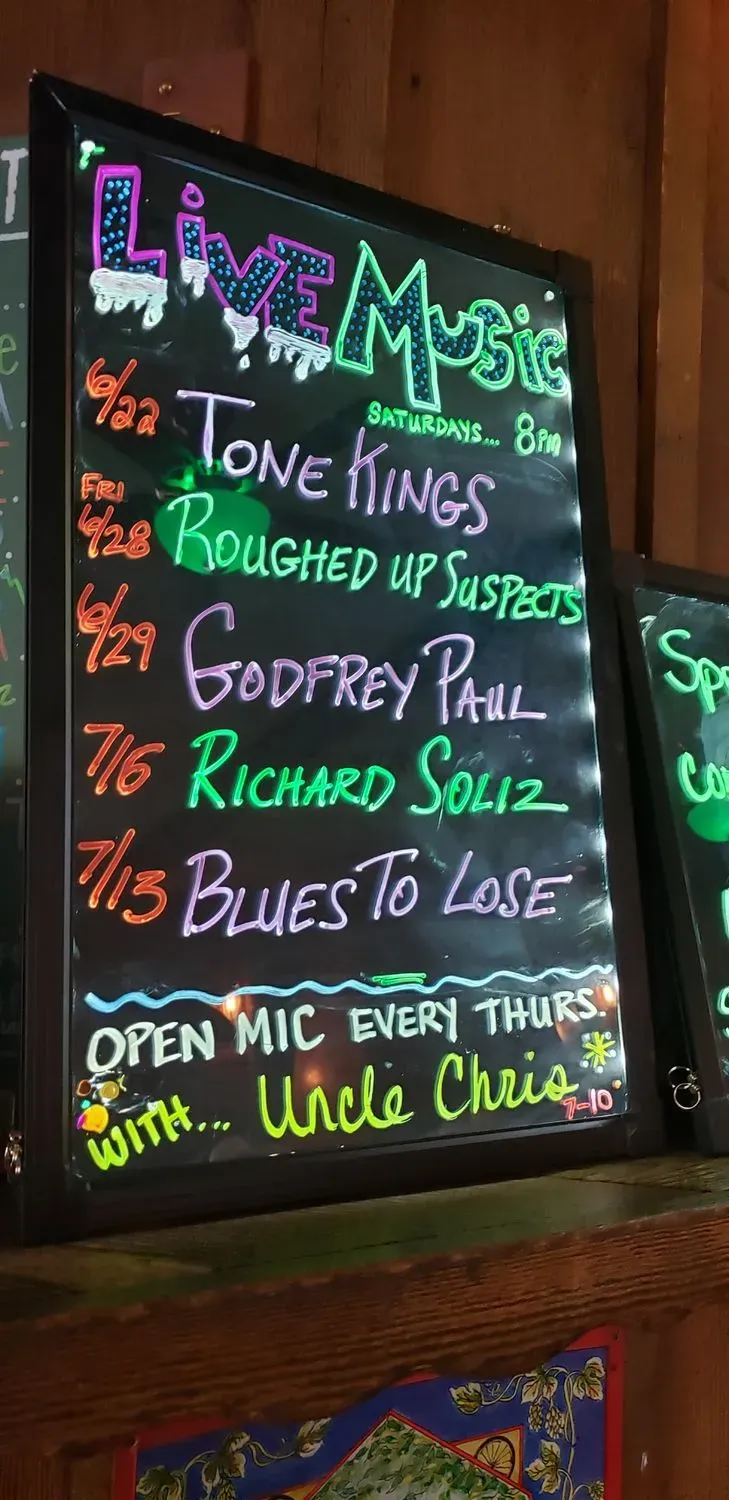 LiVE MUSiC
SATURDAYS... 8PM
6/22 TONE KINGS
FRI
6/28 ROUGHED UP SUSPECTS
6/29 GODFREY PAUL
7/6 RICHARD SOLIZ
7/13 BLUES TO LOSE
OPEN MIC EVERY THURS.
WITH... Uncle Chris
7-10